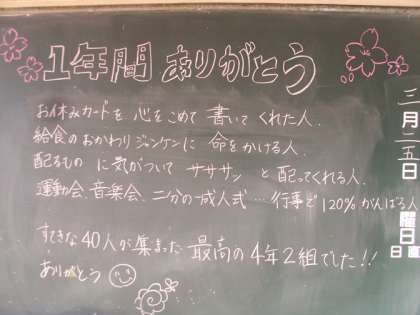 1年間ありがとう
お休みカードを 心をこめて 書いて くれた人.
給食のおかわりジャンケンに 命をかける人.
配るもの に気がついて ササササッ と 配ってくれる人.
運動会、音楽会、二分の一成人式…行事で120%がんばる人
すてきな40人が集まった 最高の4年2組でした!!
ありがとう
三月二五日
曜日
日直